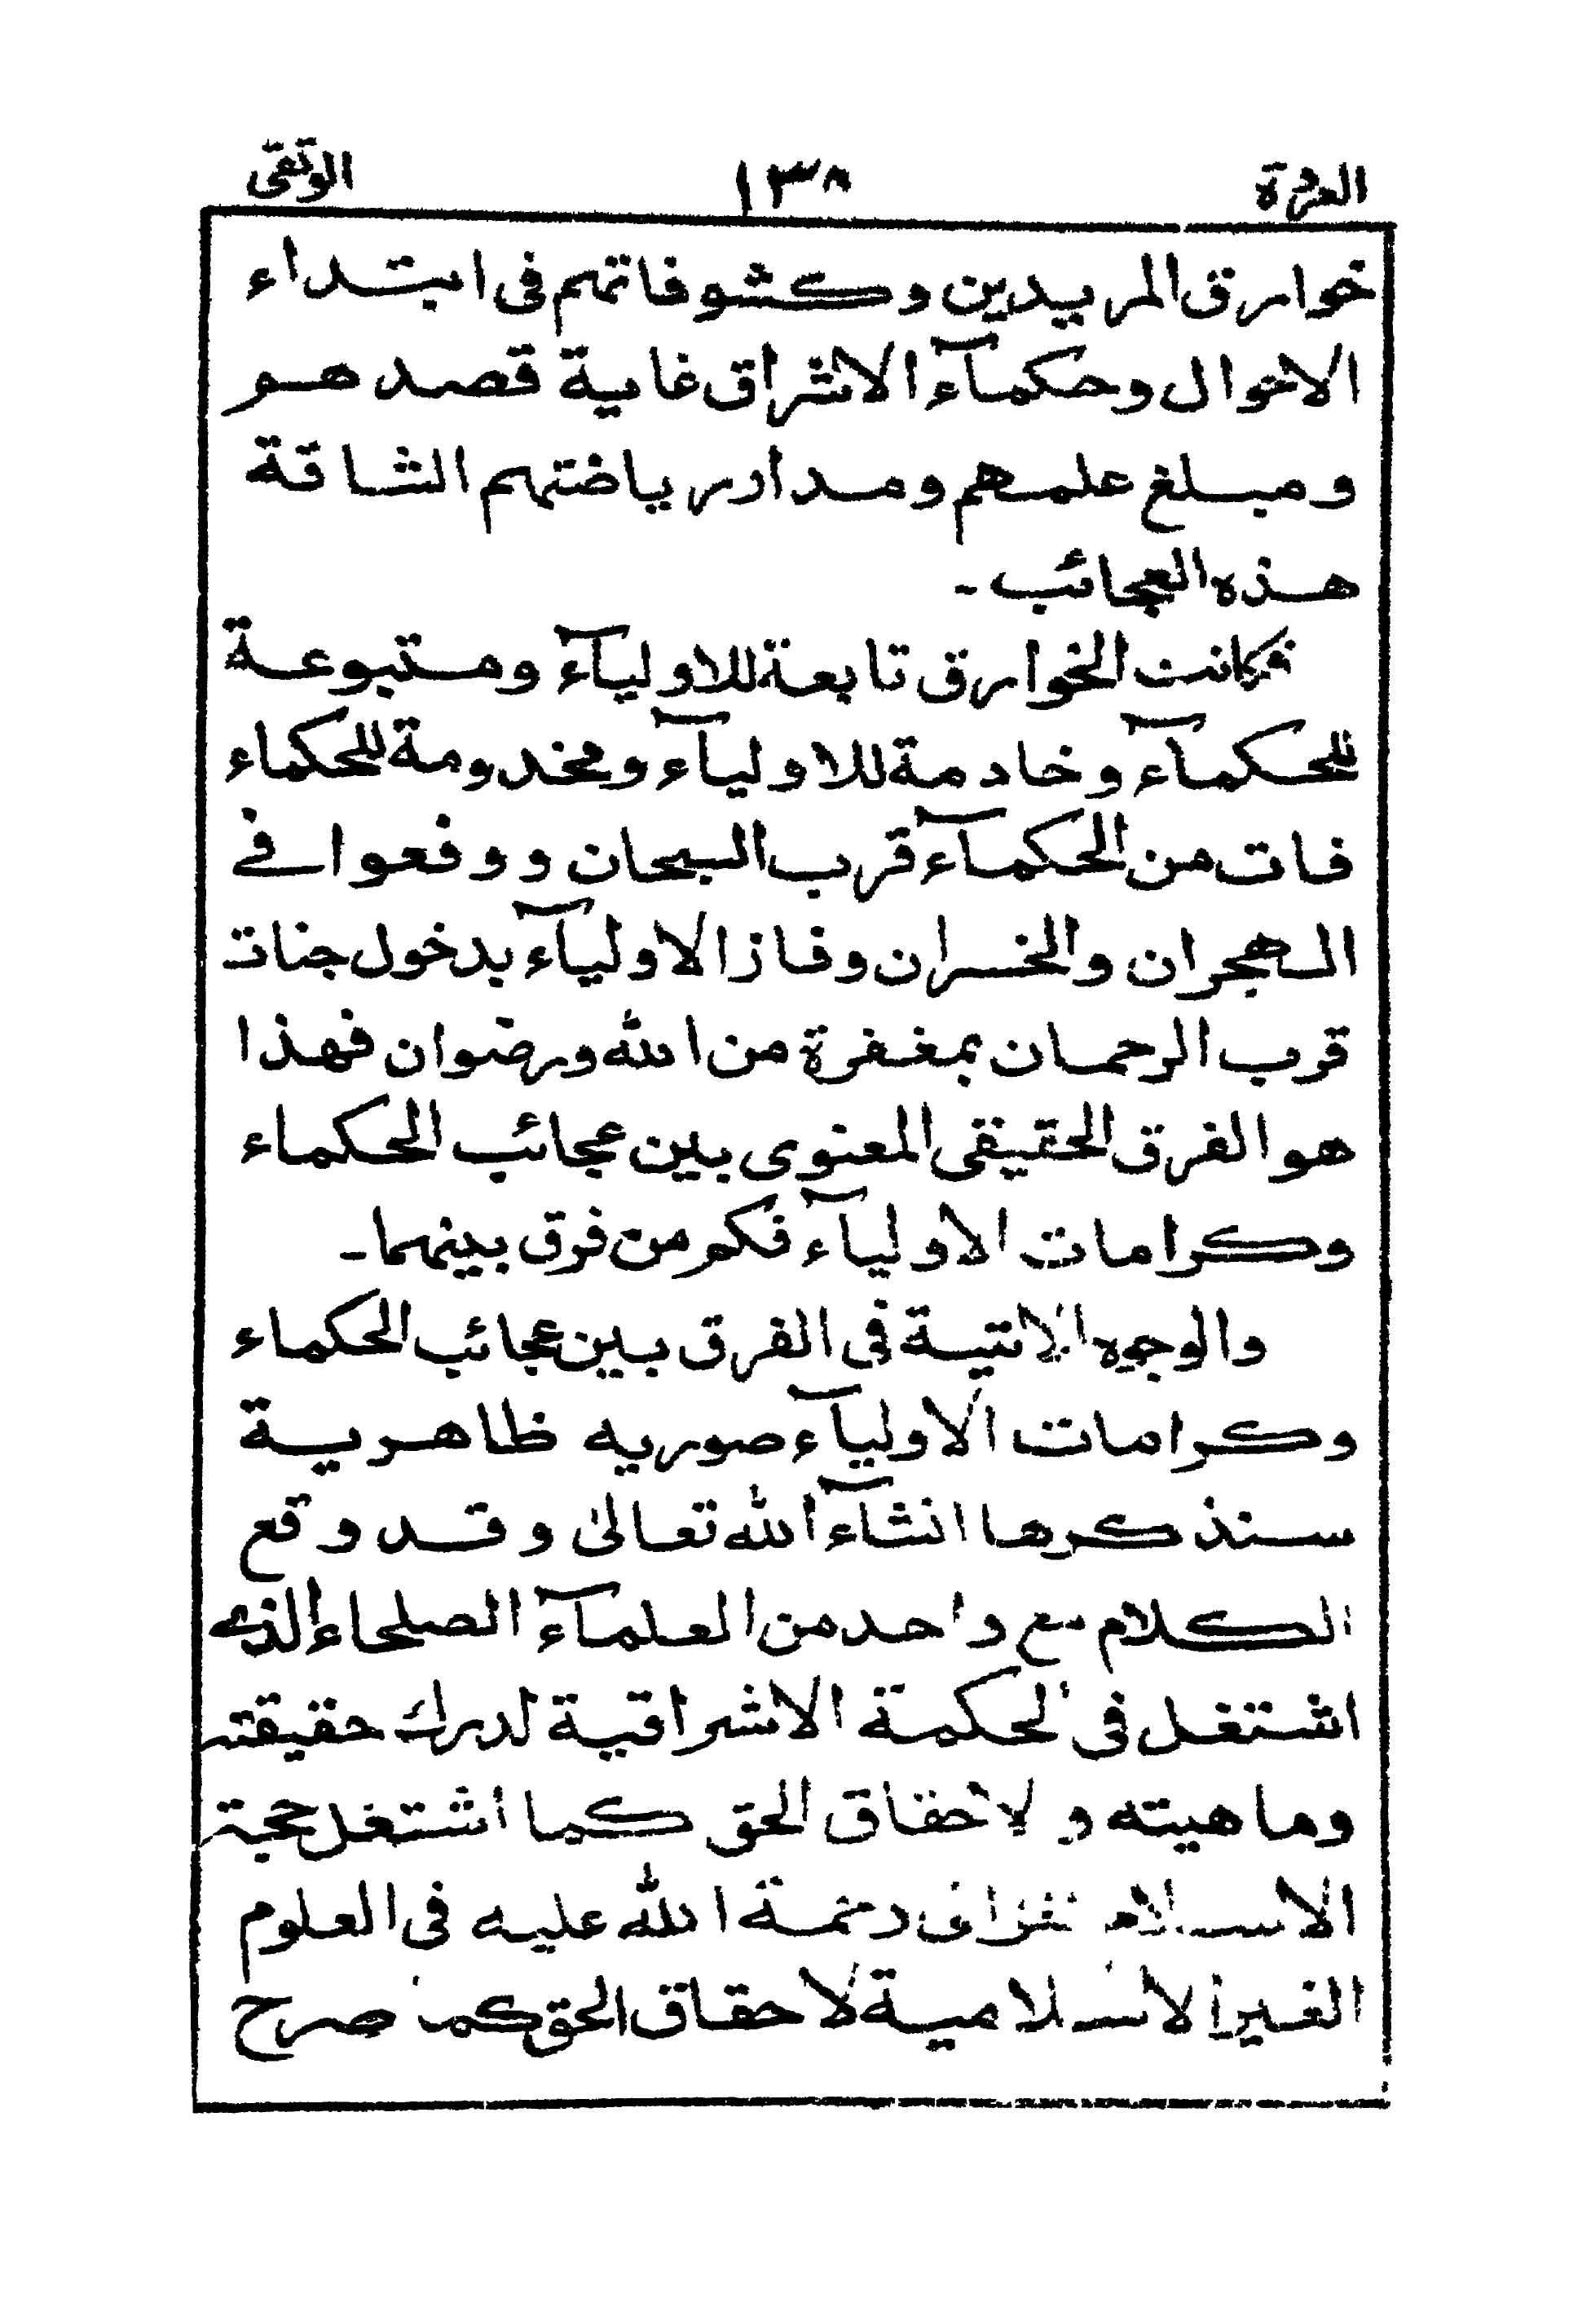 العروة ١٣٨ الوثقى
خوارق المريدين وكشوفاتهم فى ابتداء
الاحوال وحكمآء الاشراق غاية قصدهم
ومبلغ علمهم ومدار رياضتهم الشاقة
هذه العجائب -
فكانت الخوارق تابعة للاوليآء ومتبوعة
للحكمآء وخادمة للاوليآء ومخدومة للحكماء
فات من الحكمآء قرب السبحان ووقعوا في
الهجران والخسران وفاز الاوليآء بدخول جنات
قرب الرحمان بمغفرة من الله ورضوان فهذا
هو الفرق الحقيقى المعنوى بين عجائب الحكماء
وكرامات الاوليآء فكم من فرق بينهما -
والوجوه الاتية فى الفرق بين عجائب الحكماء
وكرامات الاوليآء صوريه ظاهرية
سنذكرها انشآء الله تعالىٰ وقد وقع
الكلام مع واحد من العلمآء الصلحاء الذي
اشتغل فى الحكمة الاشراقية لدرك حقيقته
وماهيته ولاحقاق الحق كما اشتغل حجة
الاسلام الغزالى رحمة الله عليه فى العلوم
الغير الاسلامية لاحقاق الحق كما صرح